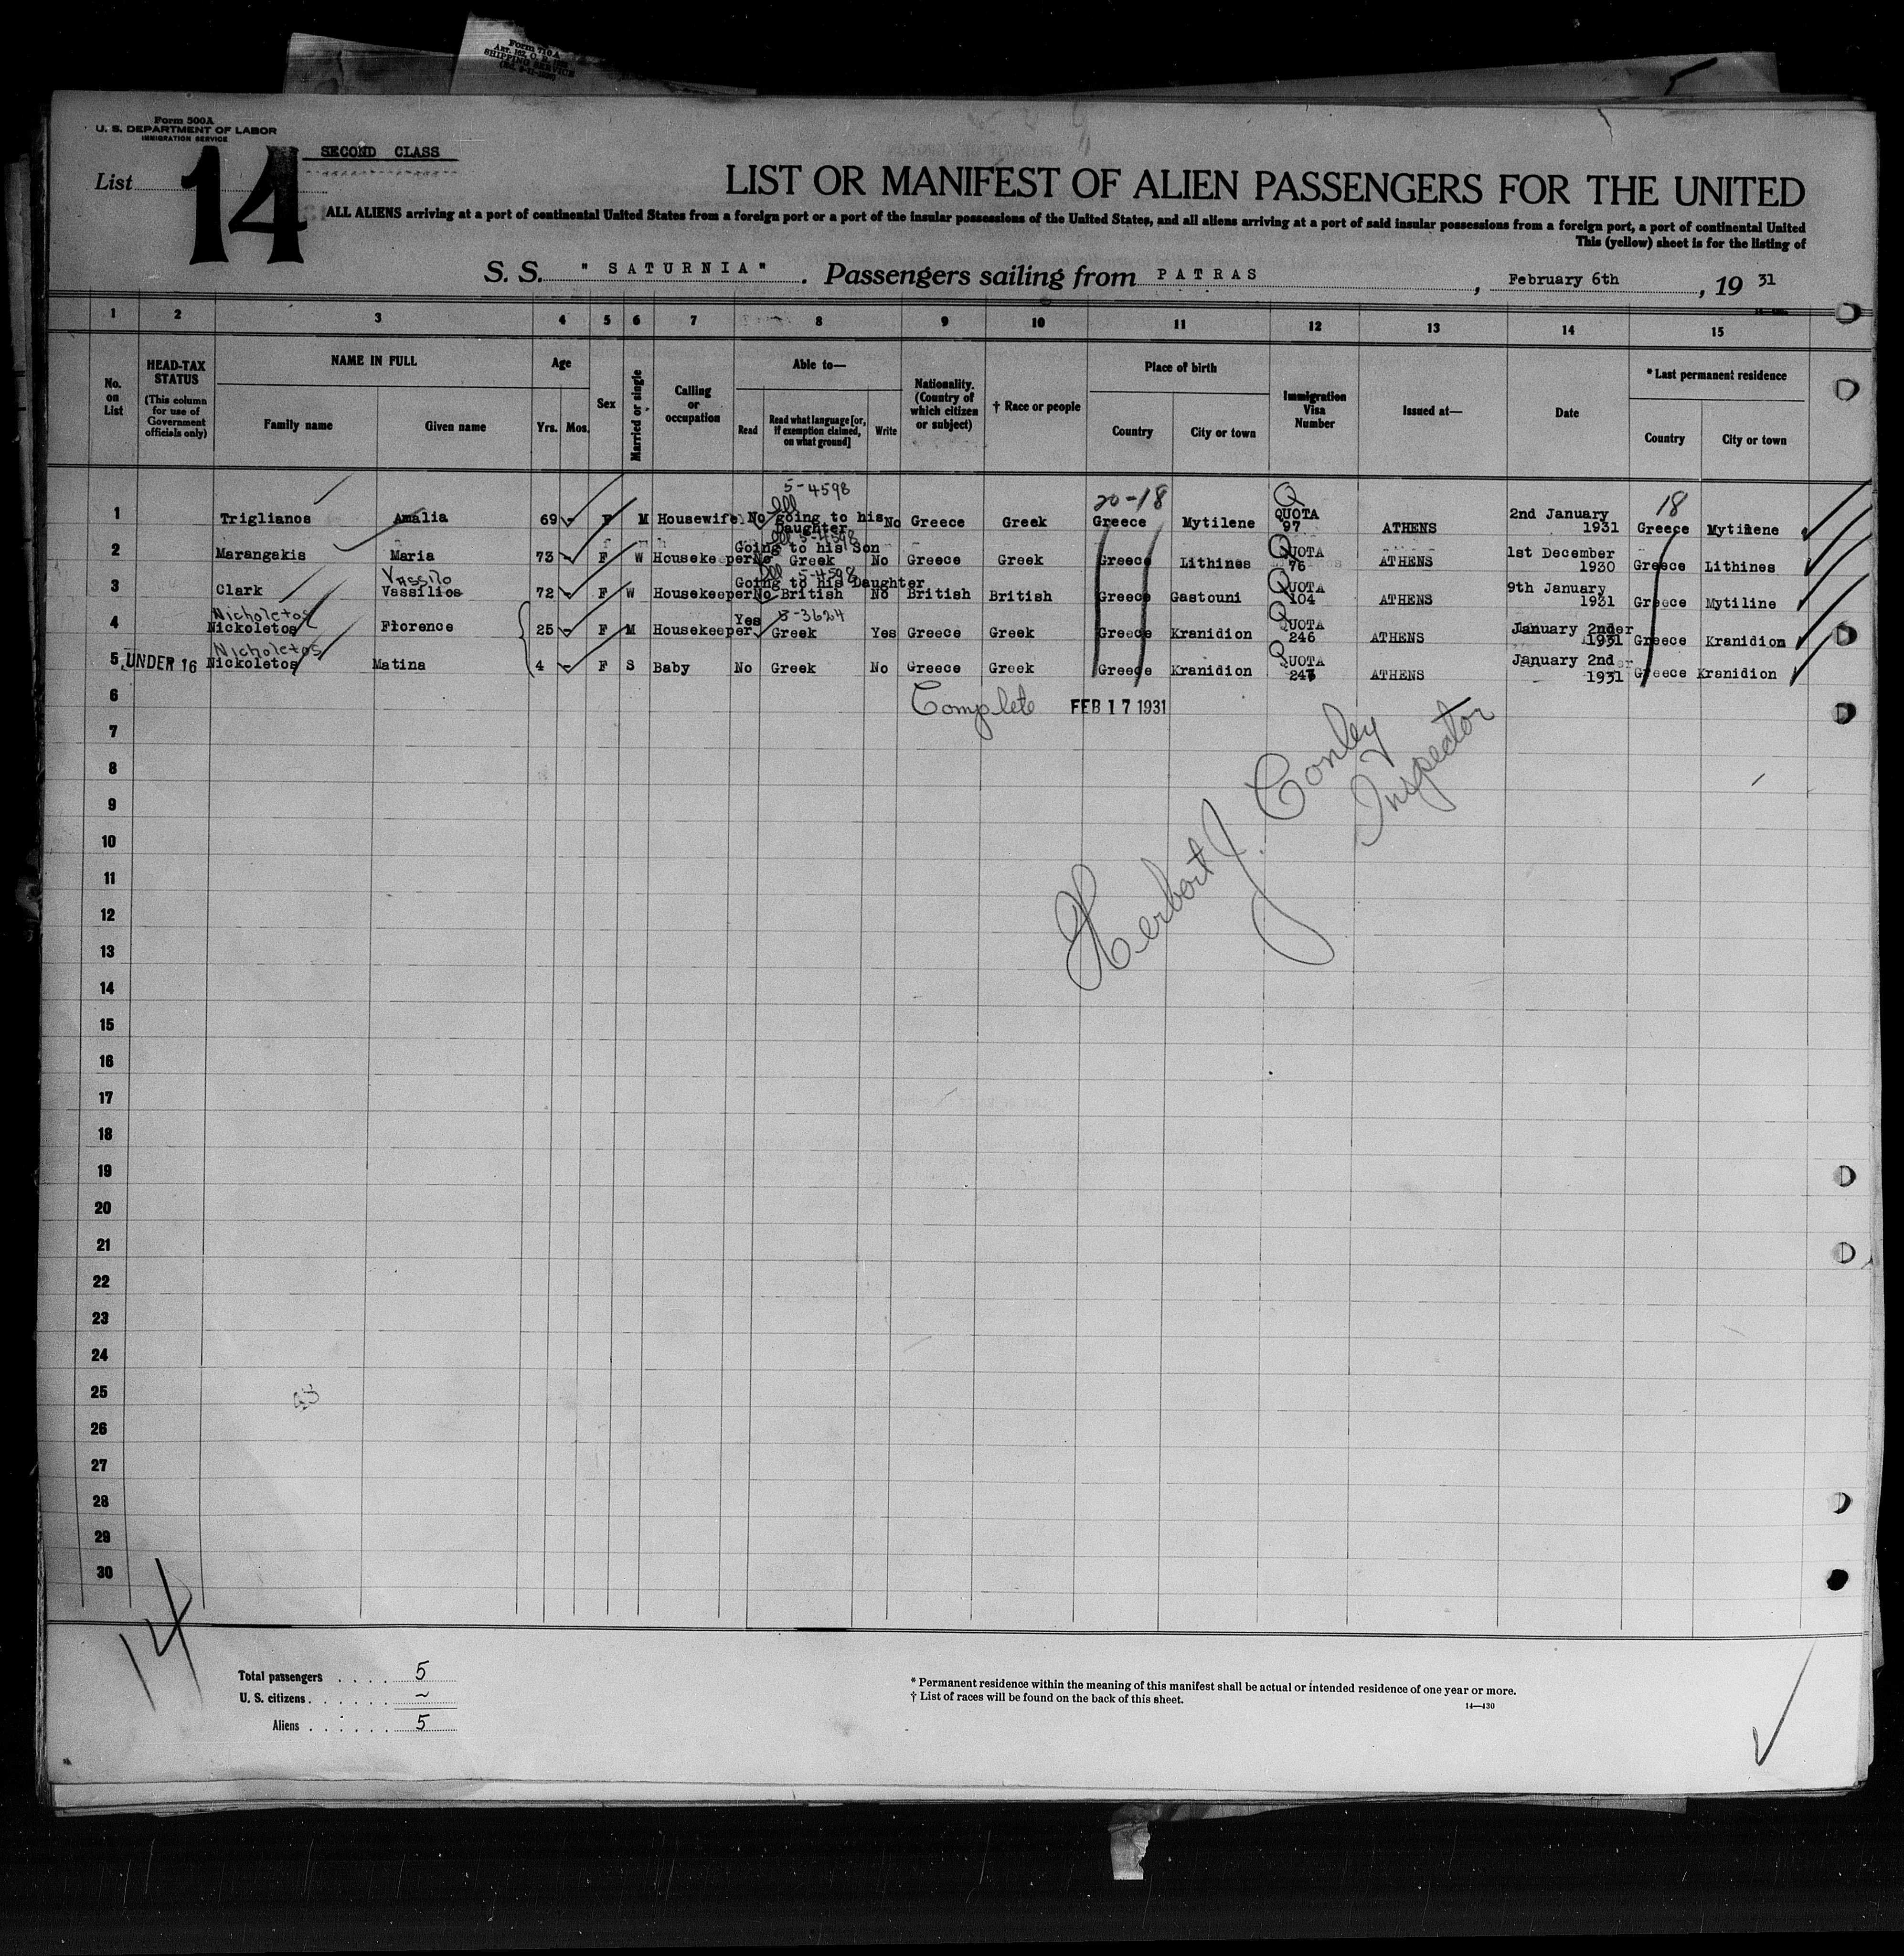 Form 710 A
SHIPPING SERVICE
Form 500A
U. S. DEPARTMENT OF LABOR
IMMIGRATION SERVICE
SECOND CLASS
List 14
LIST OR MANIFEST OF ALIEN PASSENGERS FOR THE UNITED
ALL ALIENS arriving at a port of continental United States from a foreign port or a port of the insular possessions of the United States, and all aliens arriving at a port of said insular possessions from a foreign port, a port of continental United
This (yellow) sheet is for the listing of
S. S. "SATURNIA". Passengers sailing from PATRAS, February 6th, 1931
1 2 3 4 5 6 7 8 9 10 11 12 13 14 15
No. on List
HEAD-TAX STATUS (This column for use of Government officials only)
NAME IN FULL
Family name Given name
Age
Yrs. Mos.
Sex
Married or single
Calling or occupation
Able to—
Read Read what language [or, if exemption claimed, on what ground] Write
Nationality. (Country of which citizen or subject)
† Race or people
Place of birth
Country City or town
Immigration Visa Number
Issued at—
Date
* Last permanent residence
Country City or town
5-4598 20-18 Q 18
1 Triglianos Amalia 69 - F M Housewife No going to his Daughter No Greece Greek Greece Mytilene QUOTA 97 ATHENS 2nd January 1931 Greece Mytilene
5-4598 Q
2 Marangakis Maria 73 - F W Housekeeper No Going to his Son Greek No Greece Greek Greece Lithines QUOTA 76 ATHENS 1st December 1930 Greece Lithines
Vassilo 5-4598 Q
3 Clark Vassilios 72 - F W Housekeeper No Going to his Daughter British No British British Greece Gastouni QUOTA 104 ATHENS 9th January 1931 Greece Mytiline
Nicholetos 5-3624 Q
4 Nickoletos Florence 25 - F M Housekeeper Yes Greek Yes Greece Greek Greece Kranidion QUOTA 246 ATHENS January 2nd 1931 Greece Kranidion
Nicholetos Q
5 UNDER 16 Nickoletos Matina 4 - F S Baby No Greek No Greece Greek Greece Kranidion QUOTA 247 ATHENS January 2nd 1931 Greece Kranidion
6 Complete FEB 17 1931
7
8
9
10
11
12
13
14
15
16
17
18
19
20
21
22
23
24
25
26
27
28
29
30
Herbert J. Conley
Inspector
14
Total passengers 5
U. S. citizens ~
Aliens 5
* Permanent residence within the meaning of this manifest shall be actual or intended residence of one year or more.
† List of races will be found on the back of this sheet.
14—430